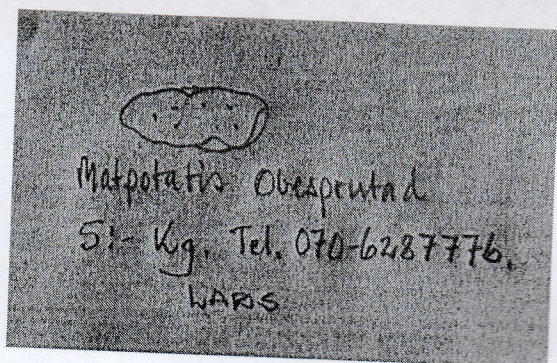 Matpotatis Obesprutad
5:- Kg. Tel. 070-6287776.
LARS